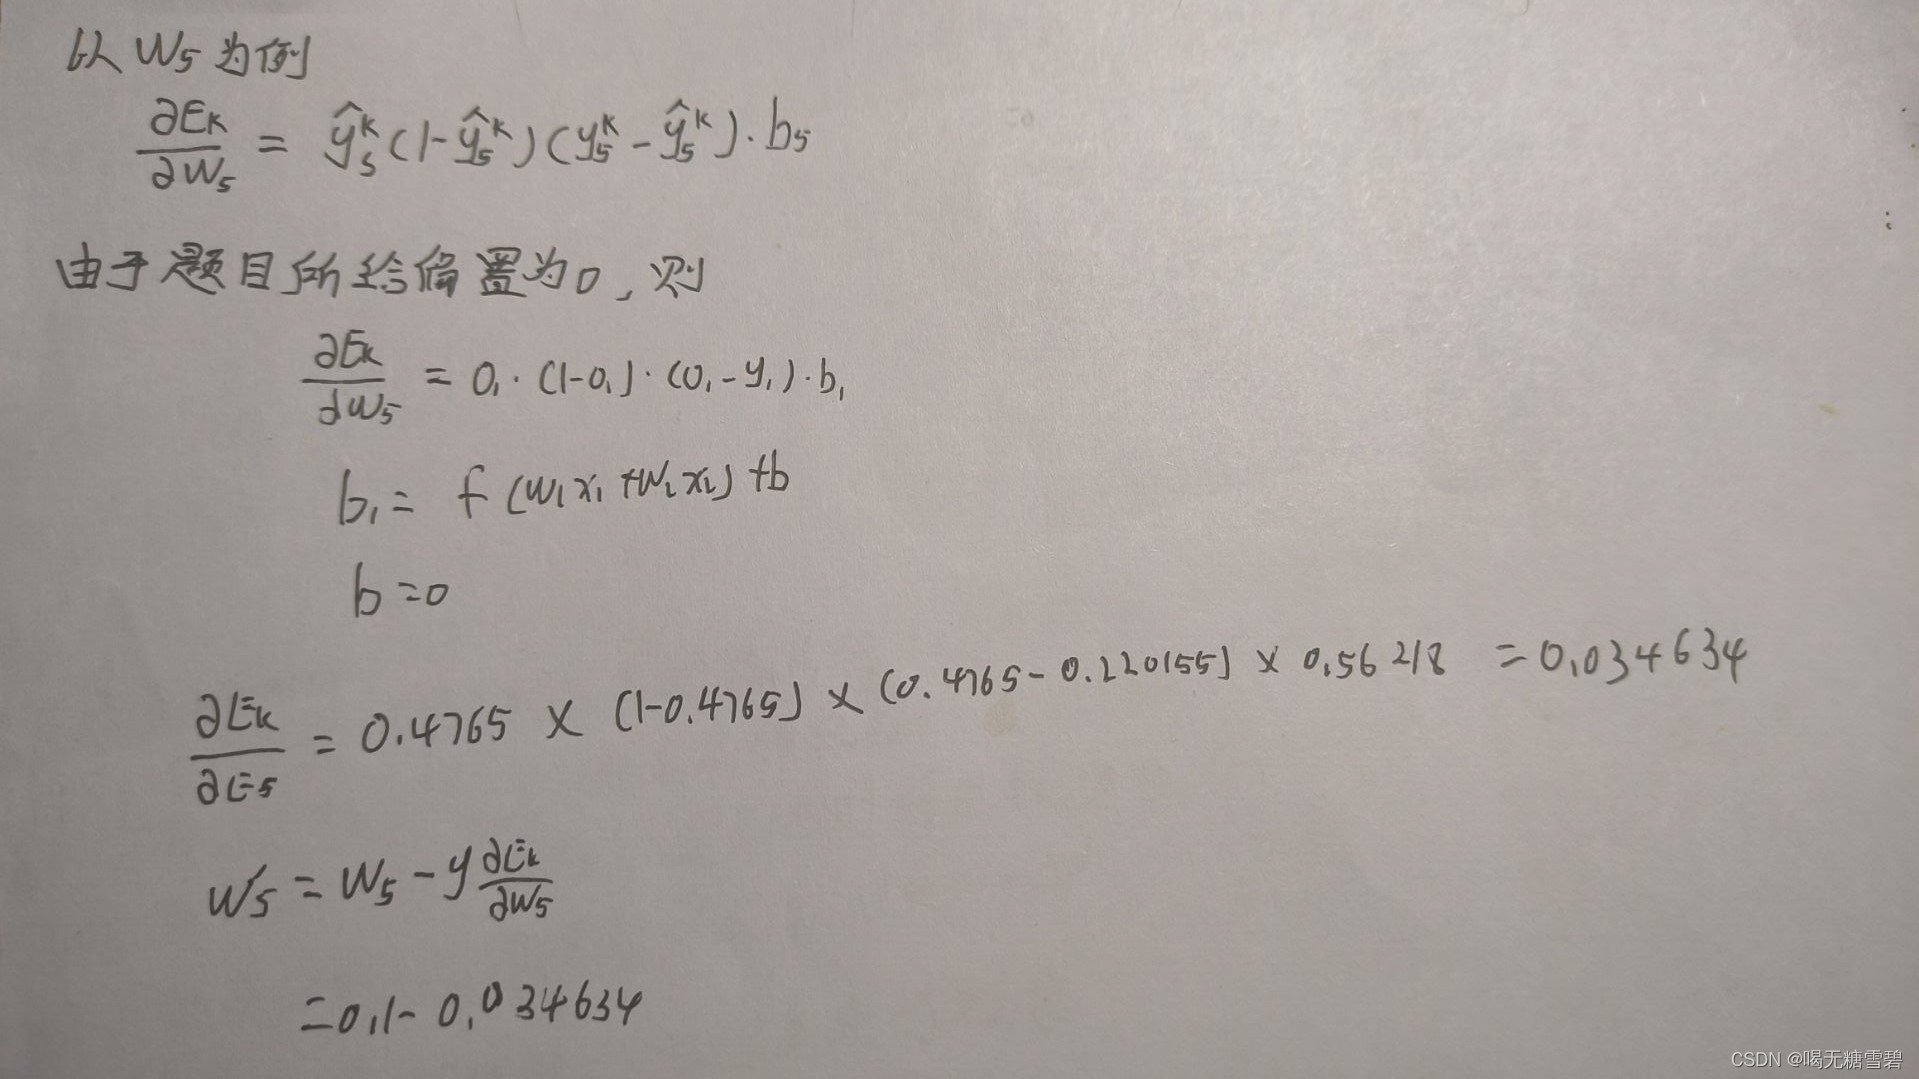 以 W5 为例
∂Ek/∂W5 = ŷ5^k (1-ŷ5^k)(y5^k - ŷ5^k)·b5
由于题目所给偏置为0,则
∂Ek/∂W5 = O1·(1-O1)·(O1-y1)·b1
b1 = f(w1x1+w2x2)+b
b=0
∂Ek/∂E5 = 0.4765 × (1-0.4765) × (0.4765-0.220155) × 0.56218 = 0.034634
W5' = W5 - y ∂Ek/∂W5
=0.1-0.034634
CSDN @喝无糖雪碧